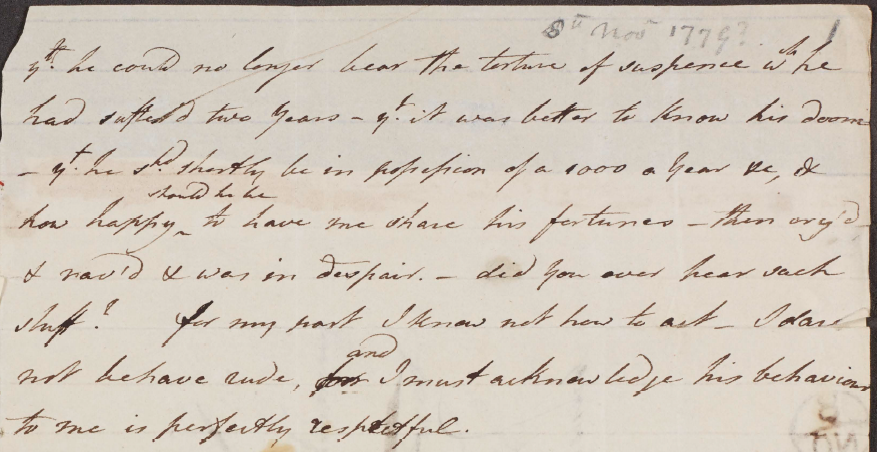 8th Novr 1779? 1
yt. he could no longer bear the torture of suspence wh he
had suffer'd two Years – yt. it was better to know his doom
– yt. he shd. shortly be in possession of a 1000 a Year &c, &
should he be
how happy ^ to have me share his fortunes – then cry'd
& rav'd & was in despair. – did you ever hear such
stuff? for my part I know not how to act – I dare
and
not behave rude, for I must acknowledge his behaviour
to me is perfectly respectful.